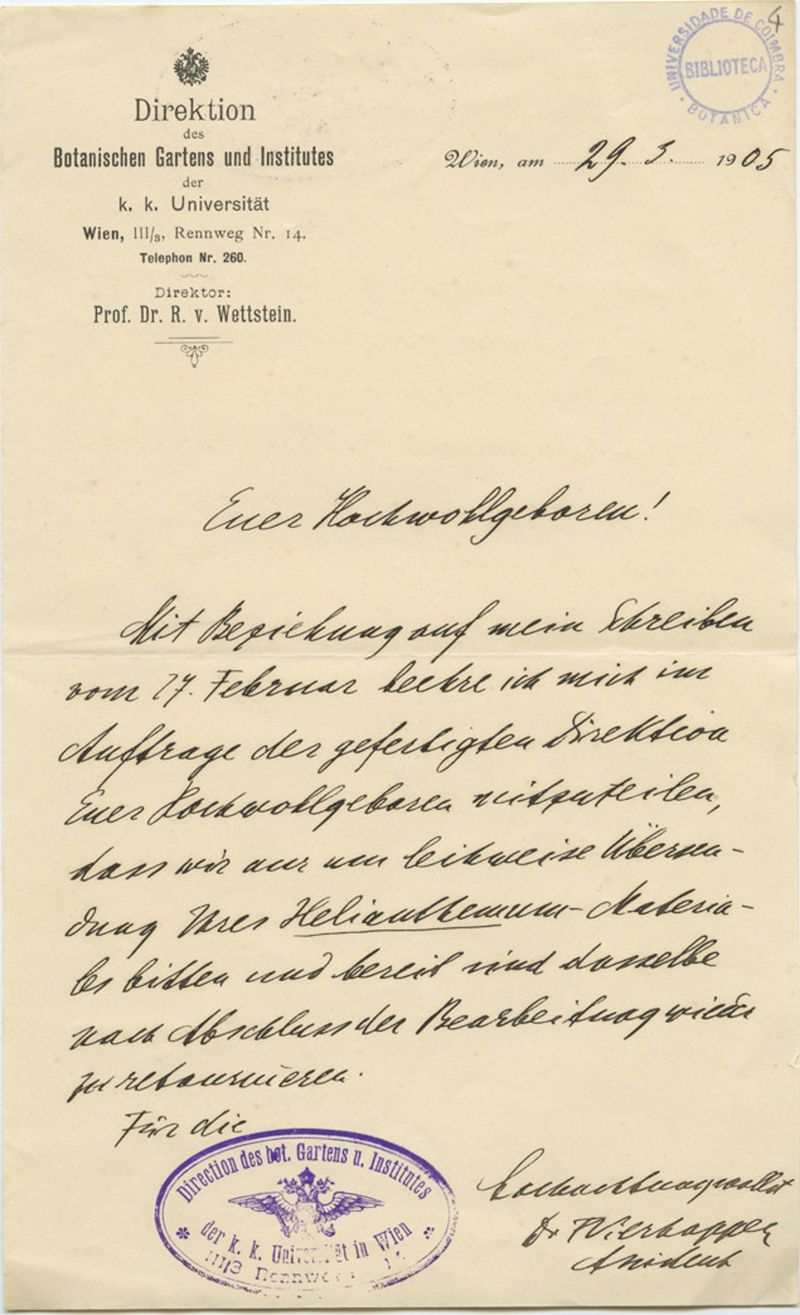 4
UNIVERSIDADE DE COIMBRA
BIBLIOTECA
BOTANICA
Direktion
des
Botanischen Gartens und Institutes
der
k. k. Universität
Wien, III/3, Rennweg Nr. 14.
Telephon Nr. 260.
Direktor:
Prof. Dr. R. v. Wettstein.
Wien, am 29. 3. 1905
Euer Hochwohlgeboren!
Mit Beziehung auf mein Schreiben
vom 27. Februar beehre ich mich im
Auftrage der gefertigten Direktion
Euer Hochwohlgeboren mitzuteilen,
dass wir nur um leihweise Übersen-
dung Ihres Helianthemum-Materia-
les bitten und bereit sind dasselbe
nach Abschluss der Bearbeitung wieder
zu retournieren.
Für die
Direction des bot. Gartens u. Institutes
der k. k. Universität in Wien
III/3 Rennweg
Hochachtungsvollst
Dr. F Vierhapper
Assistent